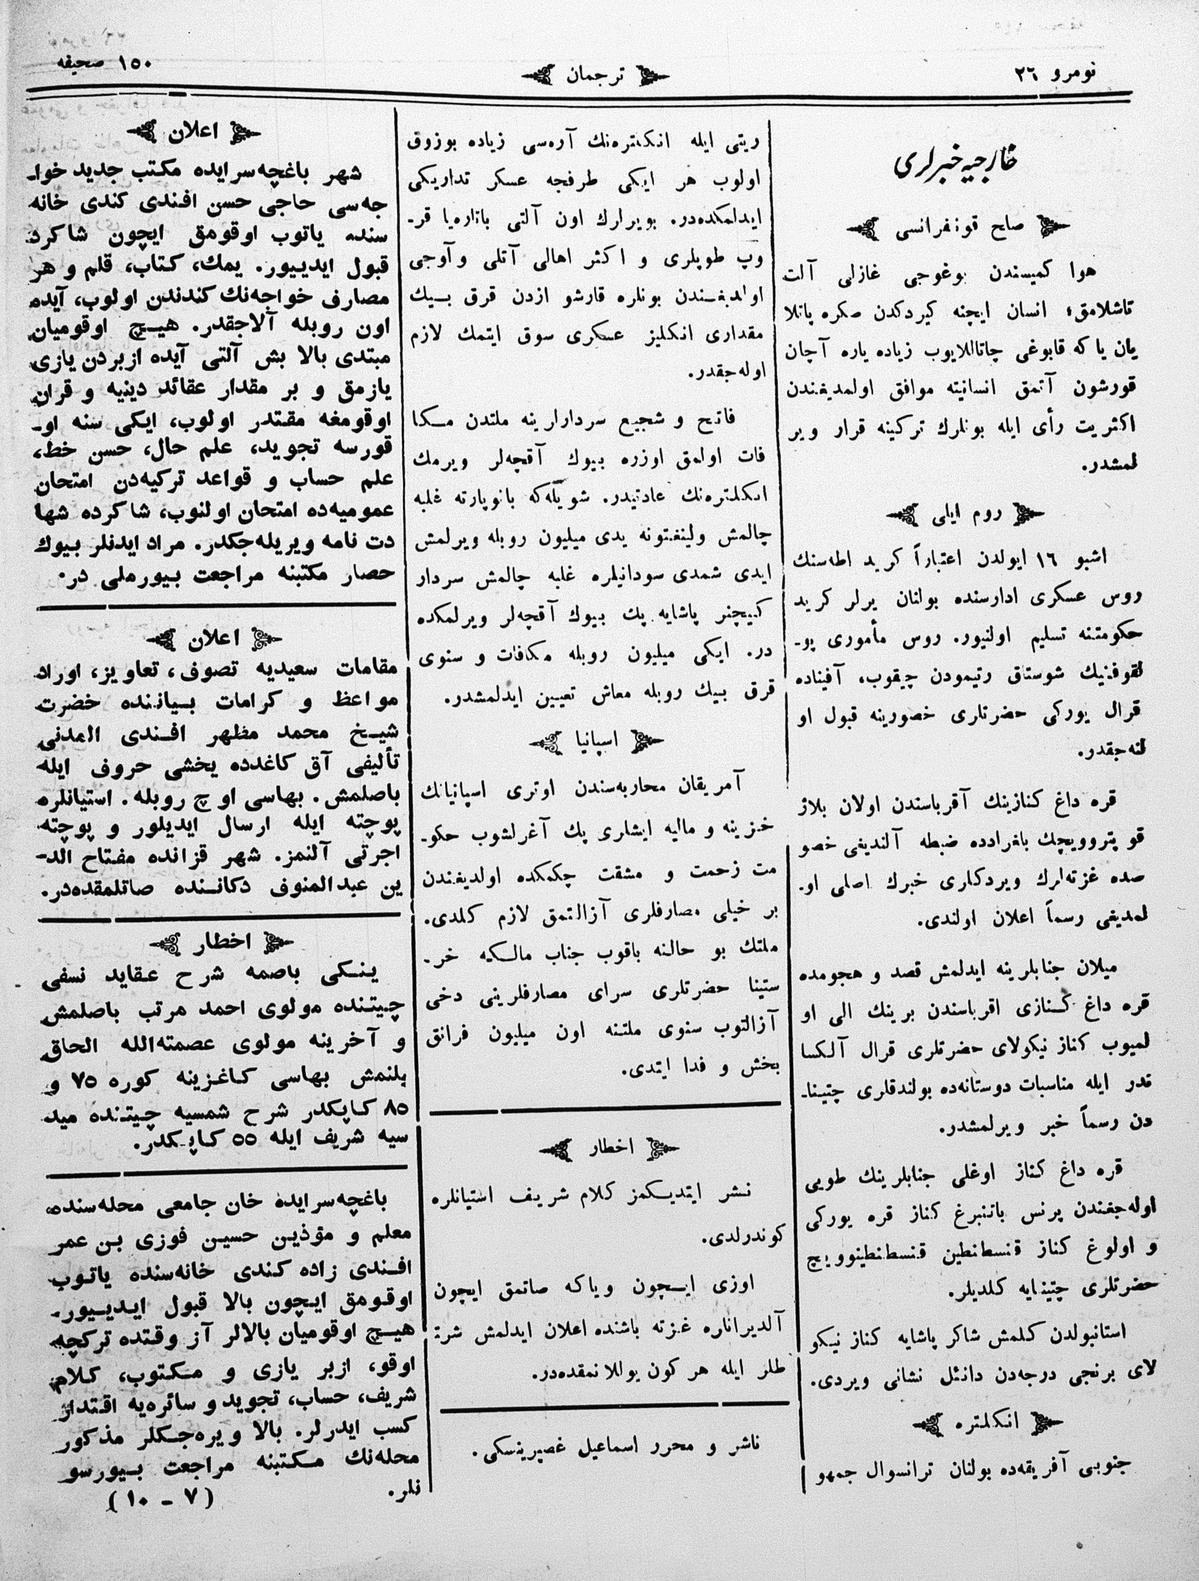 نومرو ٢٦
ترجمان
١٥٠ صحيفه
خارجيه خبرلرى
صلح قونفرانسى
هوا كميسندن بوغوجى غازلى آلت
تاشلامق؛ انسان ايچنه كيردكدن صكره پاتلا
يان ياكه قابوغى چاتاللايوب زياده ياره آچان
قورشون آتمق انسانيته موافق اولمديغندن
اكثريت رأى ايله بونلرك تركينه قرار وير
لمشدر.
روم ايلى
اشبو ١٦ ايولدن اعتباراً كريد اطه‌سنك
روس عسكرى ادارسنده بولنان يرلر كريد
حكومتنه تسليم اولنيور. روس مأمورى پو-
لقوفنيك شوستاق رتيمودن چيقوب، آفيناده
قرال يوركى حضرتلرى خصورينه قبول او
لنه‌جقدر.
قره داغ كنازينك آقرباسندن اولان بلاژ
قو پتروويچك باغرادده ضبطه آلنديغى خصو
صده غزته‌لرك ويردكارى خبرك اصلى او-
لمديغى رسماً اعلان اولندى.
ميلان جنابلرينه ايدلمش قصد و هجومده
قره داغ كنازى اقرباسندن برينك الى او
لميوب كناز نيكولاى حضرتلرى قرال آلكسا
ندر ايله مناسبات دوستانه‌ده بولندقلرى چتينا-
دن رسماً خبر ويرلمشدر.
قره داغ كناز اوغلى جنابلرينك طويى
اوله‌جغندن پرنس باتنبرغ كناز قره يوركى
و اولوغ كناز قنسطنطين قنسطنطينوويچ
حضرتلرى چتينايه كلديلر.
استانبولدن كلمش شاكر پاشايه كناز نيكو
لاى برنجى درجه‌دن دانئل نشانى ويردى.
انكلتره
جنوبى آفريقه‌ده بولنان ترانسوال جمهو
ريتى ايله انكلتره‌نك آره‌سى زياده بوزوق
اولوب هر ايكى طرفجه عسكر تداريكى
ايدلمكده‌در. بويرلرك اون آلتى بتاره‌يا قر-
وپ طوپلرى و اكثر اهالى آتلى و آوجى
اولديغندن بونلره قارشو ازدن قرق بيك
مقدارى انكليز عسكرى سوق ايتمك لازم
اوله‌جقدر.
فاتح و شجيع سردارلرينه ملتدن مكا
فات اولمق اوزره بيوك آقچه‌لر ويرمك
انكلتره‌نك عادتيدر. شويله‌كه بانوپارته غلبه
چالمش ولينغتونه يدى ميليون روبله ويرلمش
ايدى شمدى سودانيلره غلبه چالمش سردار
كيچنر پاشايه پك بيوك آقچه‌لر ويرلمكده
در. ايكى ميليون روبله مكافات و سنوى
قرق بيك روبله معاش تعيين ايدلمشدر.
اسپانيا
آمريقان محاربه‌سندن اوترى اسپانيانك
خزينه و ماليه ايشلرى پك آغرلشوب حكو-
مت زحمت و مشقت چكمكده اولديغندن
بر خيلى مصارفلرى آزالتمق لازم كلدى.
ملتك بو حالنه باقوب جناب مالكه خر-
ستينا حضرتلرى سراى مصارفلرينى دخى
آزالتوب سنوى ملتنه اون ميليون فرانق
بخش و فدا ايتدى.
اخطار
نشر ايتديكمز كلام شريف استيانلره
كوندرلدى.
اوزى ايچون وياكه صاتمق ايچون
آلديرانلره غزته باشنده اعلان ايدلمش شر
طلر ايله هر كون يوللانمقده‌در.
ناشر و محرر اسماعيل غصپرينسكى.
اعلان
شهر باغچه‌سرايده مكتب جديد خوا-
جه‌سى حاجى حسن افندى كندى خانه
سنده ياتوب اوقومق ايچون شاكرد
قبول ايدييور. يمك، كتاب، قلم و هر
مصارف خواجه‌نك كندندن اولوب، آيده
اون روبله آلاجقدر. هيچ اوقوميان
مبتدى بالا بش آلتى آيده ازبردن يازى
يازمق و بر مقدار عقائد دينيه و قران
اوقومغه مقتدر اولوب، ايكى سنه او-
قورسه تجويد، علم حال، حسن خط،
علم حساب و قواعد تركيه‌دن امتحان
عموميه‌ده امتحان اولنوب، شاكرده شها
دت نامه ويريله‌جكدر. مراد ايدنلر بيوك
حصار مكتبنه مراجعت بيورملى در.
اعلان
مقامات سعيديه تصوف، تعاويز، اوراد
مواعظ و كرامات بياننده حضرت
شيخ محمد مظهر افندى المدنى
تأليفى آق كاغدده يخشى حروف ايله
باصلمش. بهاسى اوچ روبله. استيانلره
پوچته ايله ارسال ايديلور و پوچته
اجرتى آلنمز. شهر قزانده مفتاح الد-
ين عبدالمنوف دكاننده صاتلمقده‌در.
اخطار
ينكى باصمه شرح عقايد نسفى
چيتنده مولوى احمد مرتب باصلمش
و آخرينه مولوى عصمته‌الله الحاق
يلنمش بهاسى كاغزينه كوره ٧٥ و
٨٥ كاپكدر شرح شمسيه چيتنده ميد
سيه شريف ايله ٥٥ كاپكدر.
باغچه‌سرايده خان جامعى محله‌سنده
معلم و مؤذين حسين فوزى بن عمر
افندى زاده كندى خانه‌سنده ياتوب
اوقومق ايچون بالا قبول ايدييور-
هيچ اوقوميان بالالر آز وقتده تركچه
اوقو، ازبر يازى و مكتوب، كلام
شريف، حساب، تجويد و سائره‌يه اقتدار
كسب ايدرلر. بالا ويره‌جكلر مذكور
محله‌نك مكتبنه مراجعت بيورسو
نلر.
(٧ - ١٠)